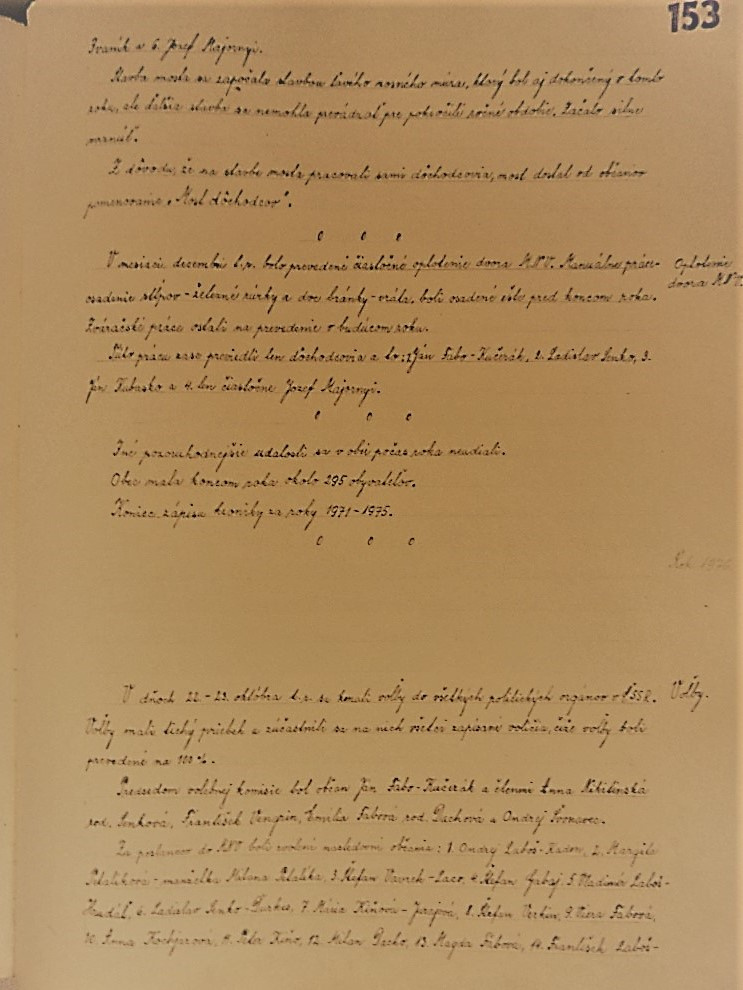 153
Ivaník a 6. Jozef Majornyi.
Stavba mosta sa započala stavbou ľavého nosného múra, ktorý bol aj dokončený v tomto
roku, ale ďalšia stavba sa nemohla prevádzať pre pokročilé ročné obdobie. Začalo silne
mrznúť.
Z dôvodu, že na stavbe mosta pracovali sami dôchodcovia, most dostal od občanov
pomenovanie „Most dôchodcov".
V mesiaci decembri t.r. bolo prevedené čiastočné oplotenie dvora MNV. Manuálne práce-
osadenie stĺpov - železné rúrky a dve bránky - vráta, boli osadené ešte pred koncom roka.
Zváračské práce ostali na prevedenie v budúcom roku.
Oplotenie
dvora MNV.
Túto prácu zase previedli len dôchodcovia a to: 1. Ján Fabo-Kučerák, 2. Ladislav Senko, 3.
Ján Kubaško a 4. len čiastočne Jozef Majornyi.
Iné pozoruhodnejšie udalosti sa v obci počas roka neudiali.
Obec mala koncom roka okolo 295 obyvateľov.
Koniec zápisu kroniky za roky 1971-1975.
Rok 1976
V dňoch 22.-23. októbra t.r. sa konali voľby do všetkých politických orgánov v ČSSR.
Voľby.
Voľby mali tichý priebeh a zúčastnili sa na nich všetci zapísaní voličia, čiže voľby boli
prevedené na 100%.
Predsedom volebnej komisie bol občan Ján Fabo-Kučerák a členmi Anna Nikitinská
rod. Senková, František Vengrin, Emília Fabová rod. Dachová a Ondrej
Za poslancov do MNV boli zvolení nasledovní občania: 1. Ondrej Laboš-Kadov, 2. Margita
Petalíková - manželka Milana Petalíka, 3. Štefan Vavrek-Laco, 4. Štefan 5. Vladimír Laboš-
6. Ladislav Senko- 7. Mária Kiňová- 8. Štefan 9. Viera Fabová,
10. Anna 11. Peter Kiňo, 12. Milan Decko, 13. Magda Fabová, 14. František Laboš-